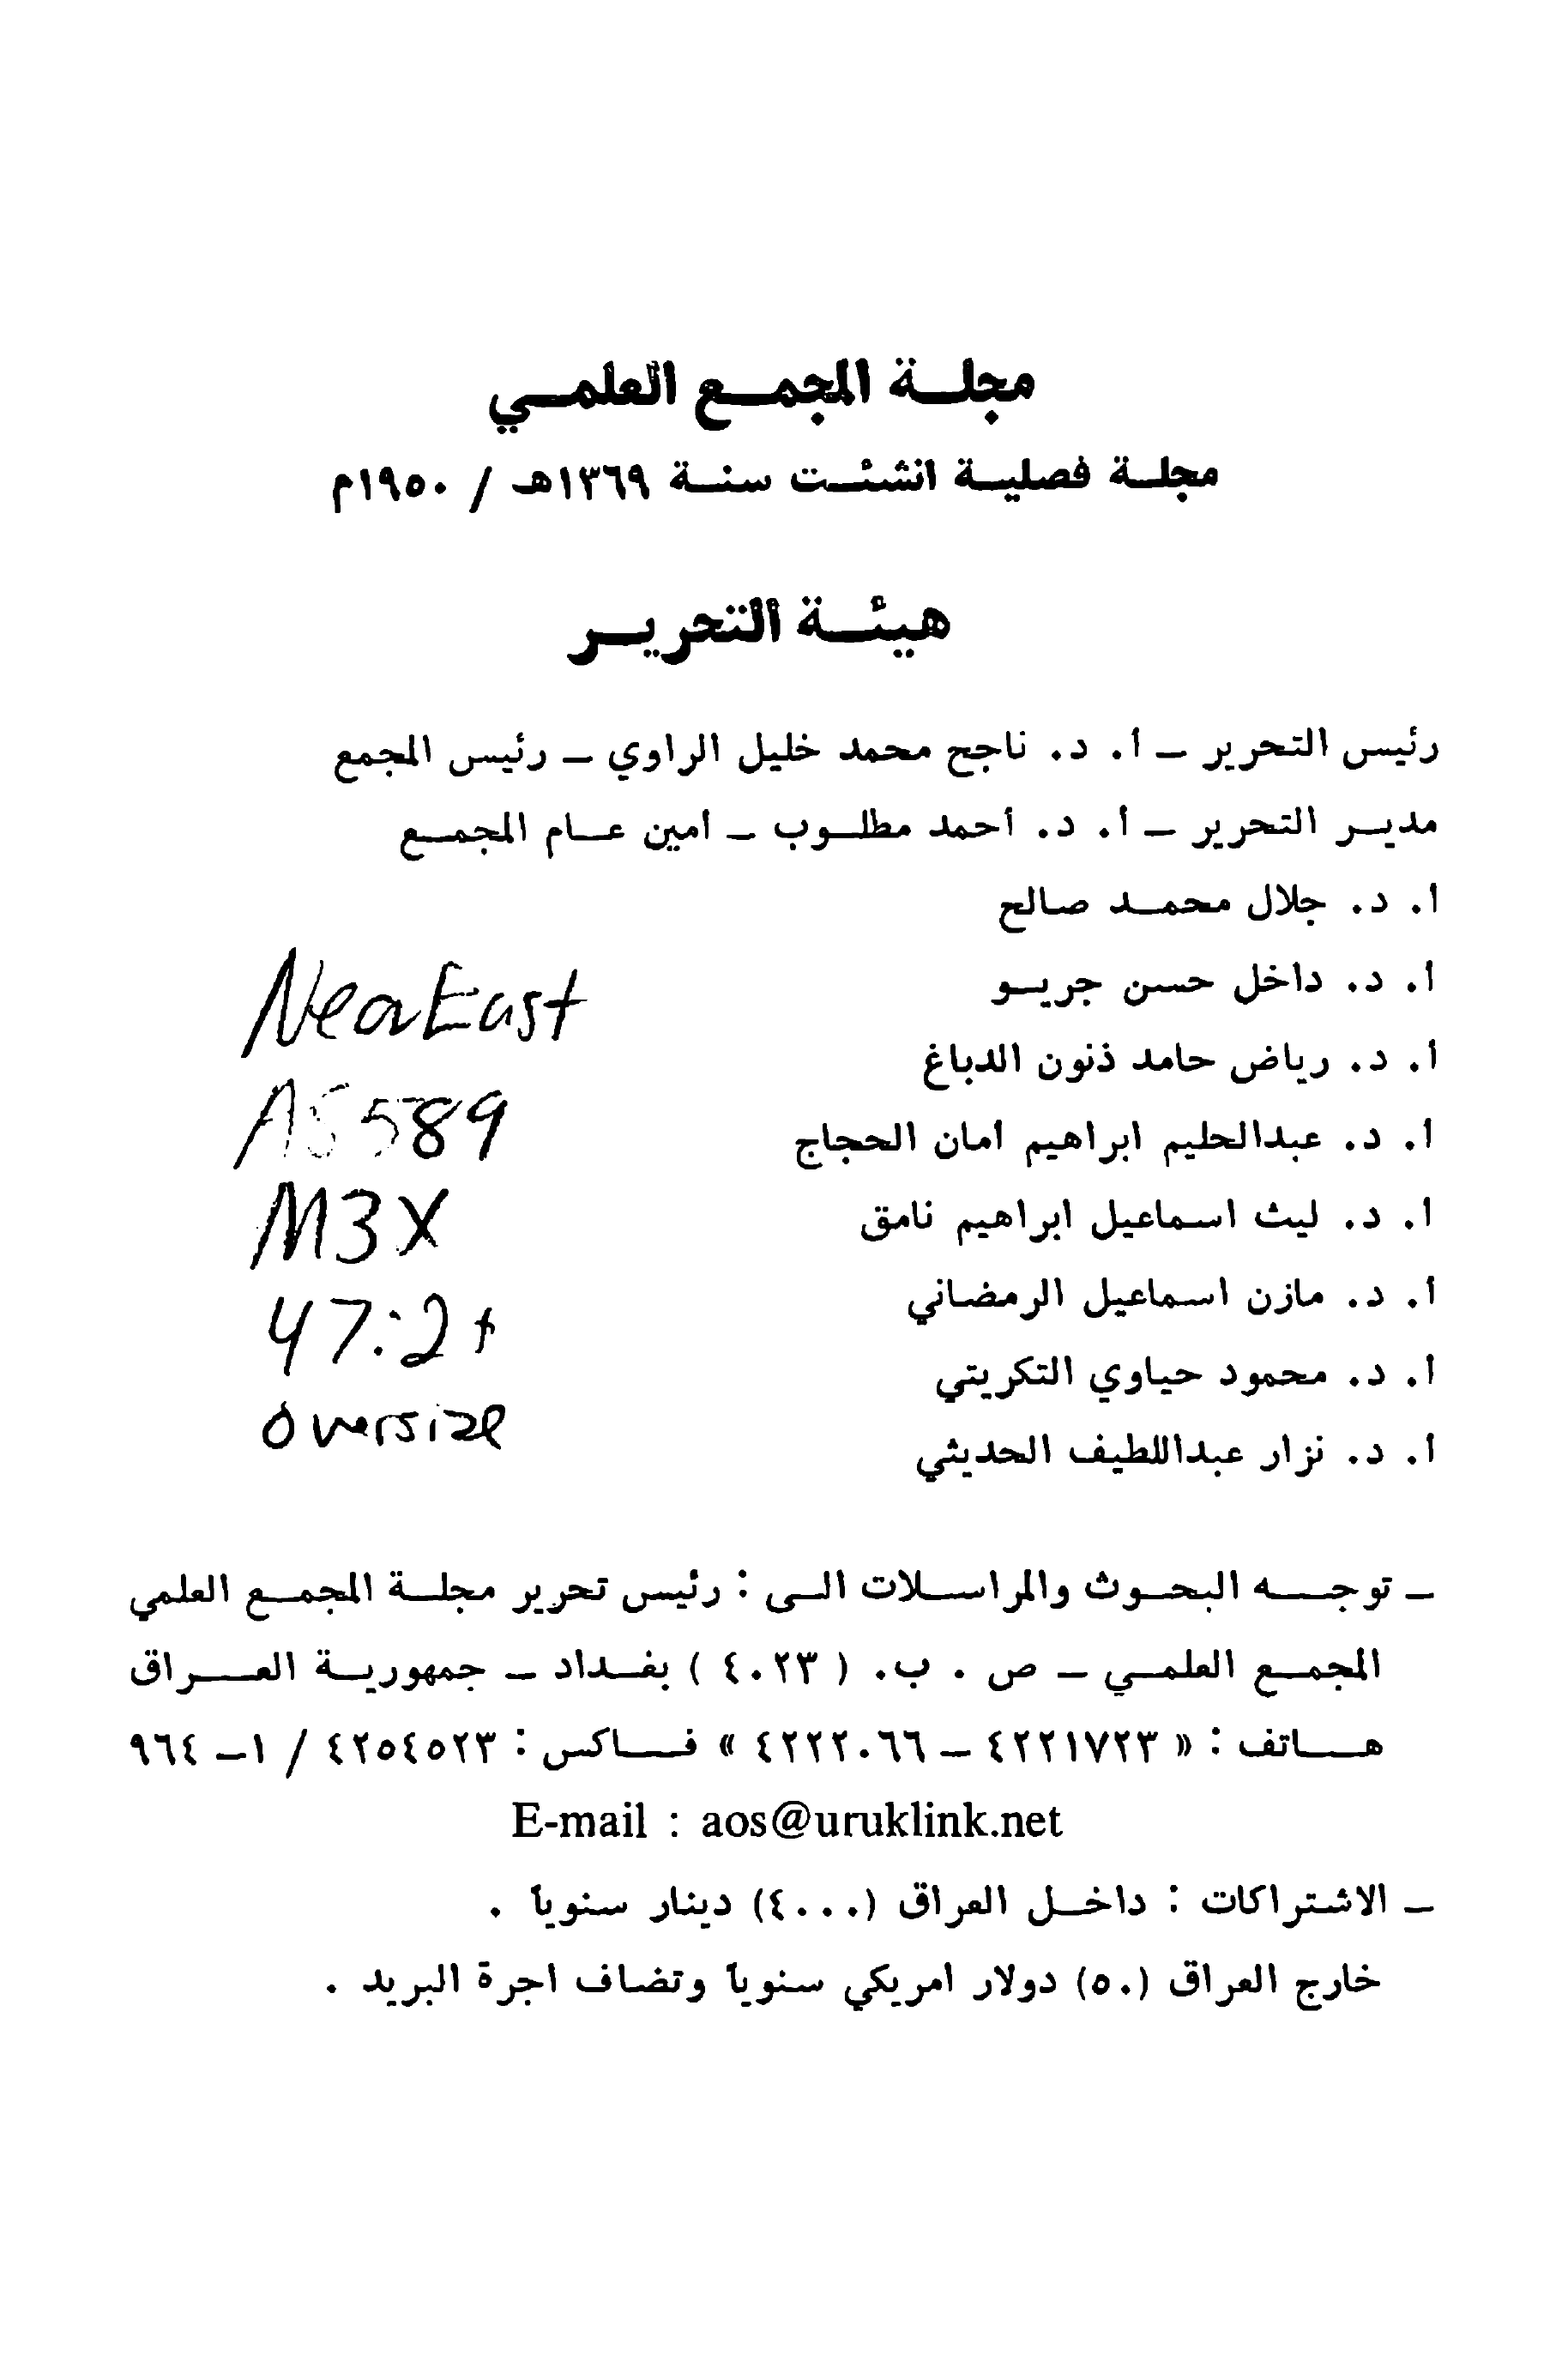 مجلة المجمع العلمي
مجلة فصلية انشئت سنة ١٣٦٩هـ / ١٩٥٠م
هيئة التحرير
رئيس التحرير – أ. د. ناجح محمد خليل الراوي – رئيس المجمع
مدير التحرير – أ. د. أحمد مطلوب – أمين عام المجمع
أ. د. جلال محمد صالح
أ. د. داخل حسن جريو
أ. د. رياض حامد ذنون الدباغ
أ. د. عبدالحليم ابراهيم أمان الحجاج
أ. د. ليث اسماعيل ابراهيم نامق
أ. د. مازن اسماعيل الرمضاني
أ. د. محمود حياوي التكريتي
أ. د. نزار عبداللطيف الحديثي
Near East
AS 589
M3X
47:2+
oversize
– توجه البحوث والمراسلات الى : رئيس تحرير مجلة المجمع العلمي
المجمع العلمي – ص . ب. ( ٤٠٢٣ ) بغداد – جمهورية العراق
هاتف : « ٤٢٢١٧٢٣ – ٤٢٢٢٠٦٦ » فاكس : ٤٢٥٤٥٢٣ / ١– ٩٦٤
E-mail : aos@uruklink.net
– الاشتراكات : داخل العراق (٤٠٠٠) دينار سنوياً .
خارج العراق (٥٠) دولار امريكي سنوياً وتضاف اجرة البريد .